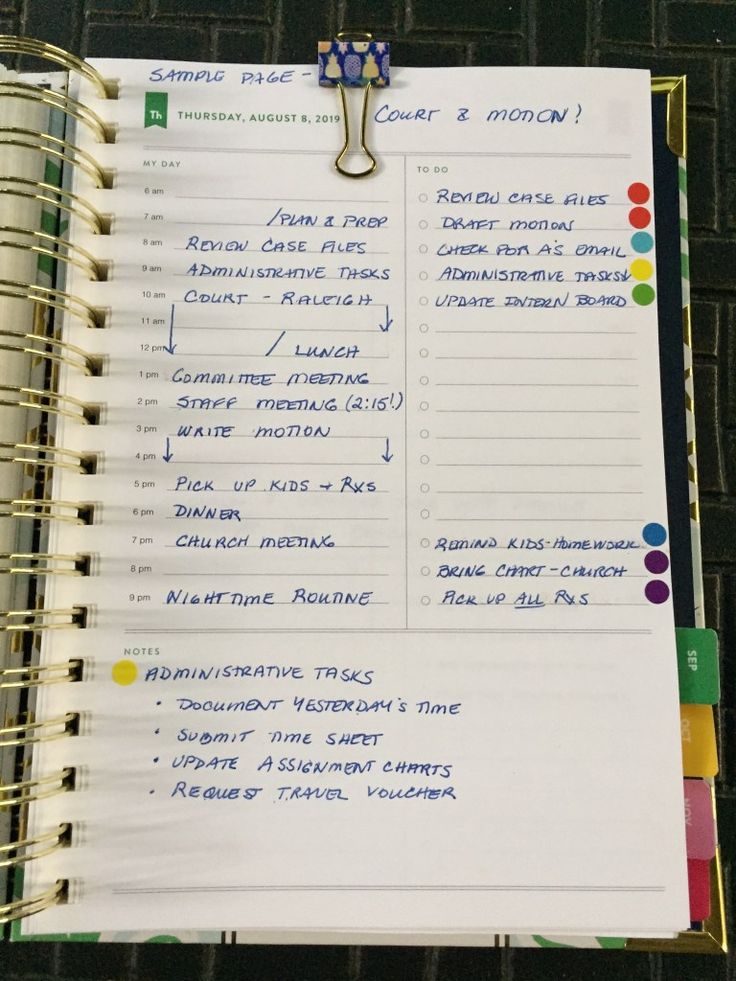 SAMPLE PAGE -
Th THURSDAY, AUGUST 8, 2019
COURT & MOTION!
MY DAY
6 am
7 am /PLAN & PREP
8 am REVIEW CASE FILES
9 am ADMINISTRATIVE TASKS
10 am COURT - RALEIGH
11 am
12 pm / LUNCH
1 pm COMMITTEE MEETING
2 pm STAFF MEETING (2:15!)
3 pm WRITE MOTION
4 pm
5 pm PICK UP KIDS + RXS
6 pm DINNER
7 pm CHURCH MEETING
8 pm
9 pm NIGHTTIME ROUTINE
TO DO
REVIEW CASE FILES
DRAFT MOTION
CHECK FOR A'S EMAIL
ADMINISTRATIVE TASKS↓
UPDATE INTERN BOARD
REMIND KIDS-HOMEWORK
BRING CHART-CHURCH
PICK UP ALL RXS
NOTES
ADMINISTRATIVE TASKS
• DOCUMENT YESTERDAY'S TIME
• SUBMIT TIME SHEET
• UPDATE ASSIGNMENT CHARTS
• REQUEST TRAVEL VOUCHER
SEP
OCT
NOV